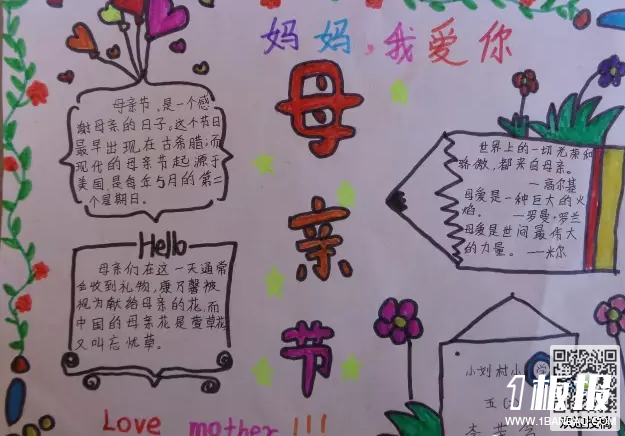 妈妈，我爱你
母亲节
母亲节，是一个感
谢母亲的日子，这个节日
最早出现在古希腊；而
现代的母亲节起源于
美国，是每年5月的第二
个星期日。
Hello
母亲们在这一天通常
会收到礼物，康乃馨被
视为献给母亲的花，而
中国的母亲花是萱草花
又叫忘忧草。
Love mother!!!
世界上的一切光荣和
骄傲，都来自母亲。
—高尔基
母爱是一种巨大的火
焰。 —罗曼·罗兰
母爱是世间最伟大
的力量。 —米尔
小刘村小学
五
板报
WWW.1BANBAO.COM
欢迎投稿